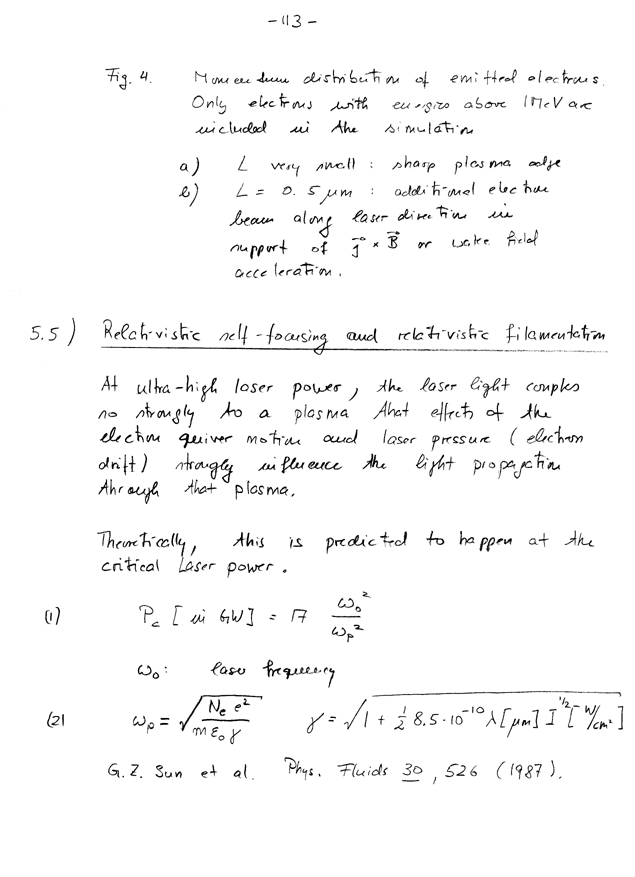 -113-
Fig. 4. Momentum distribution of emitted electrons.
Only electrons with energies above 1MeV are
included in the simulation
a) L very small : sharp plasma edge
b) L = 0.5 μm : additional electron
beam along laser direction in
support of j⃗ × B⃗ or wake field
acceleration.
5.5) Relativistic self-focusing and relativistic filamentation
At ultra-high laser power, the laser light couples
so strongly to a plasma that effects of the
electron quiver motion and laser pressure (electron
drift) strongly influence the light propagation
through that plasma.
Theoretically, this is predicted to happen at the
critical Laser power.
(1) P_c [in GW] = 17 ω₀²/ω_p²
ω₀: laser frequency
(2) ω_p = √(N_e e² / m ε₀ γ) γ = √(1 + ½ 8.5·10⁻¹⁰ λ[μm] I^{1/2} [W/cm²])
G.Z. Sun et al. Phys. Fluids 30, 526 (1987).